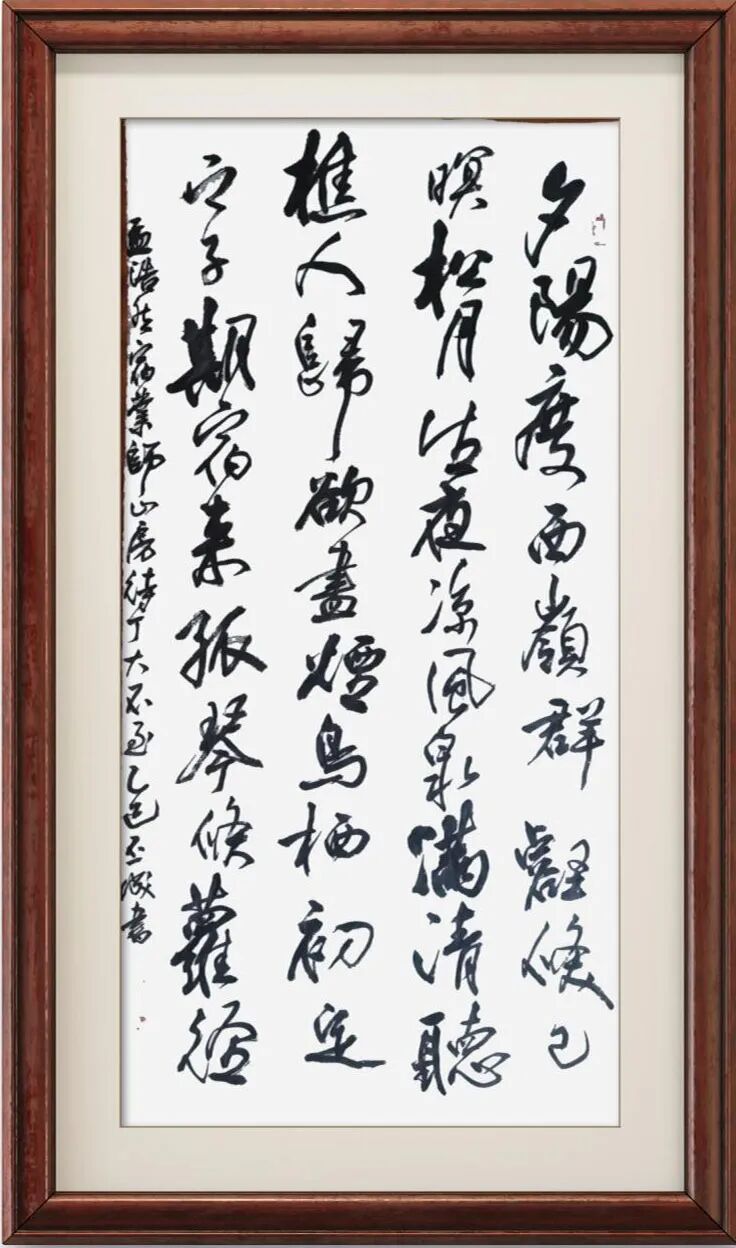 夕陽度西嶺群壑倏已
暝松月生夜涼風泉滿清聽
樵人歸欲盡煙鳥栖初定
之子期宿來孤琴候蘿徑
孟浩然宿業師山房待丁大不至乙巳書